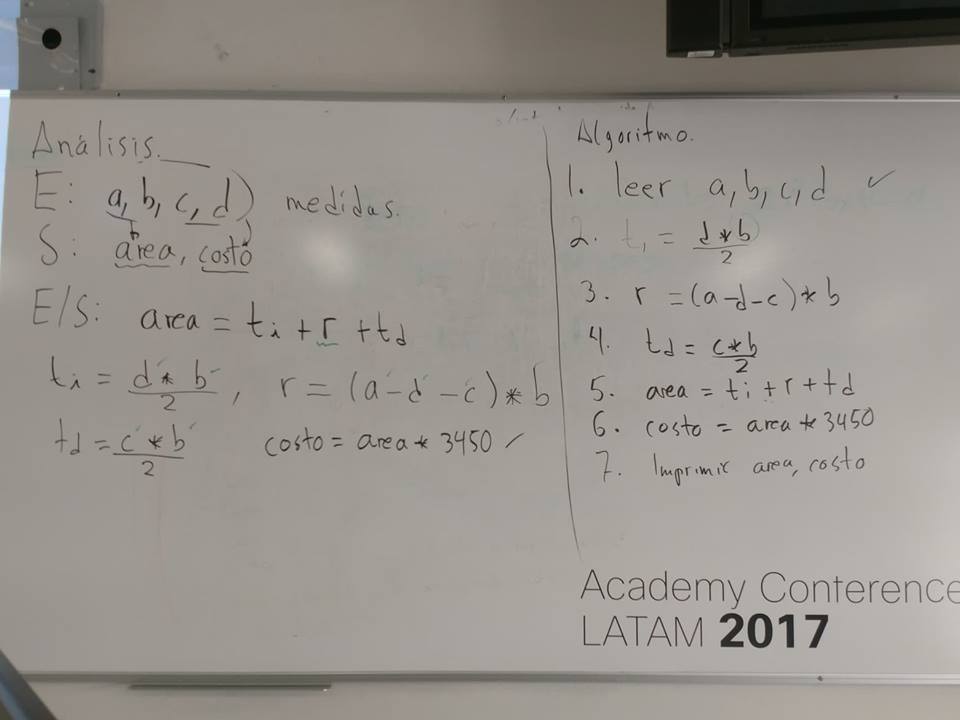 Análisis.
E: a, b, c, d) medidas.
S: área, costo
E/S: area = ti + r + td
ti = d * b / 2 , r = (a - d - c) * b
td = c * b / 2 costo = area * 3450 ✓
Algoritmo.
1. leer a, b, c, d ✓
2. t1 = d * b / 2
3. r = (a-d-c) * b
4. td = c * b / 2
5. area = ti + r + td
6. costo = area * 3450
7. Imprimir area, costo
Academy Conference
LATAM 2017